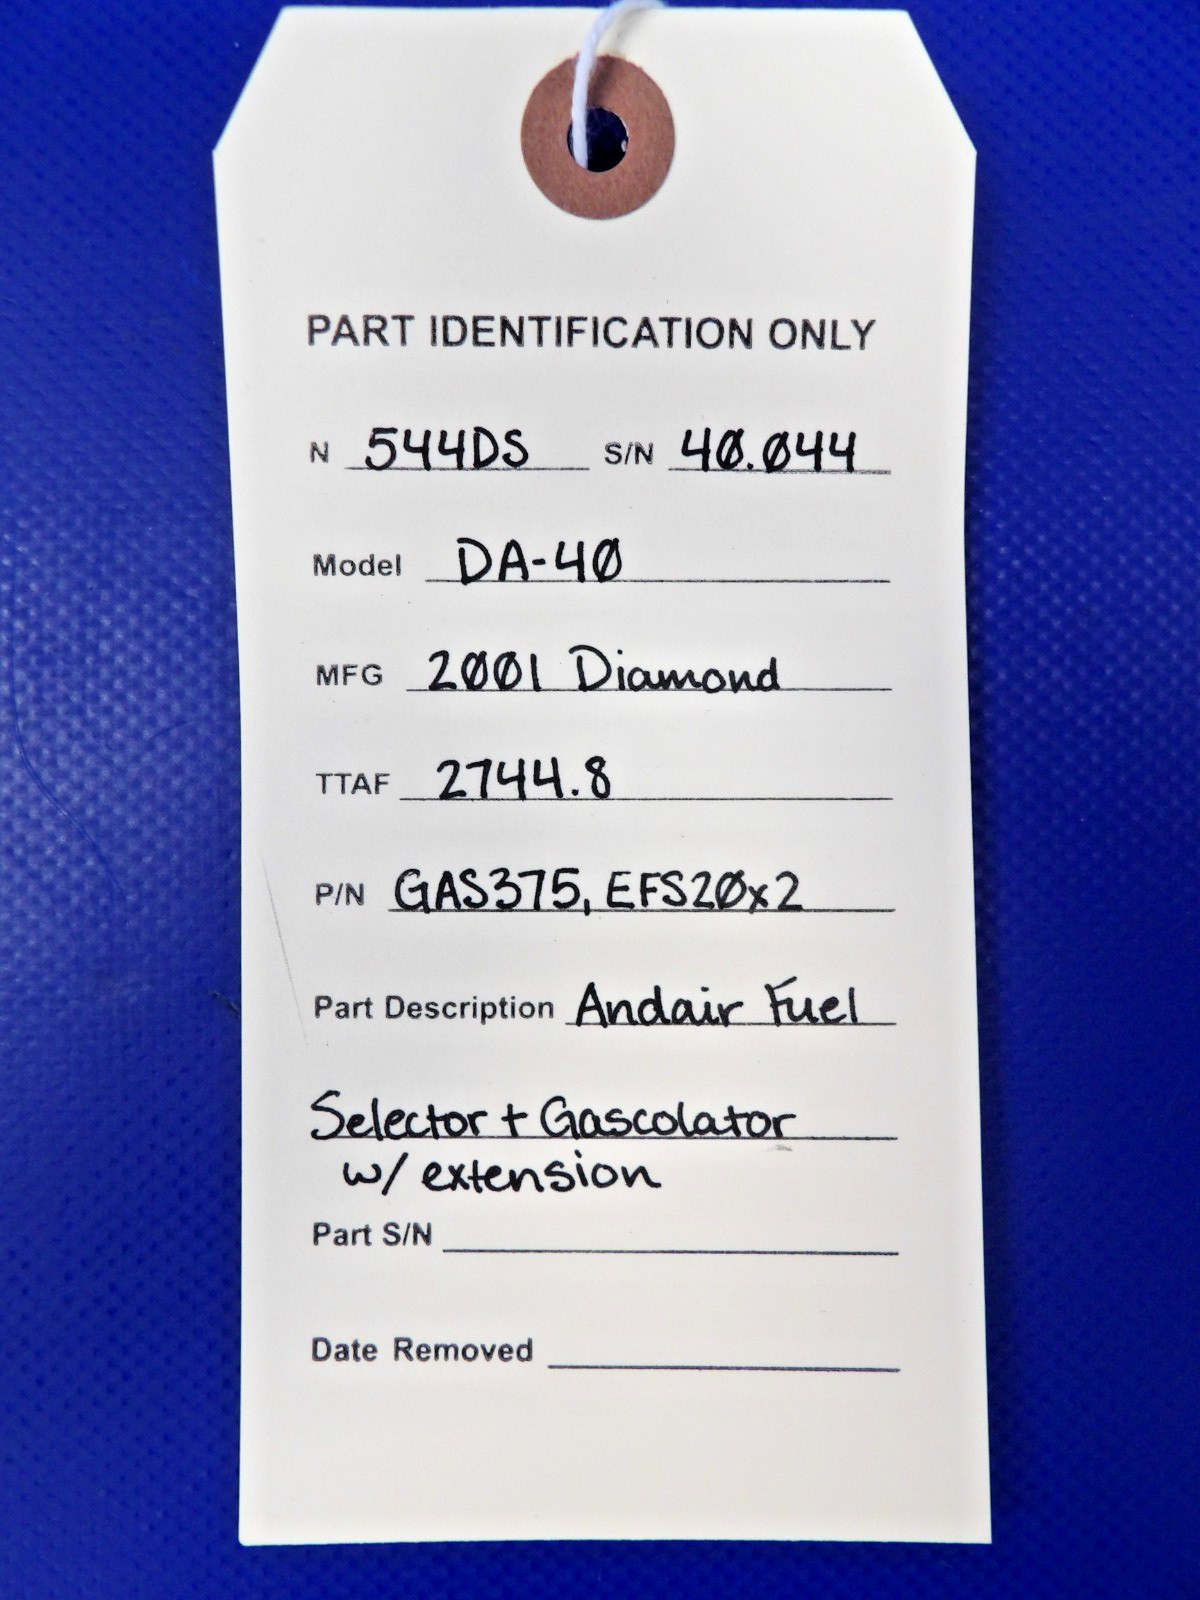 PART IDENTIFICATION ONLY
N 544DS S/N 40.044
Model DA-40
MFG 2001 Diamond
TTAF 2744.8
P/N GAS375, EFS20x2
Part Description Andair Fuel
Selector + Gascolator
w/ extension
Part S/N
Date Removed